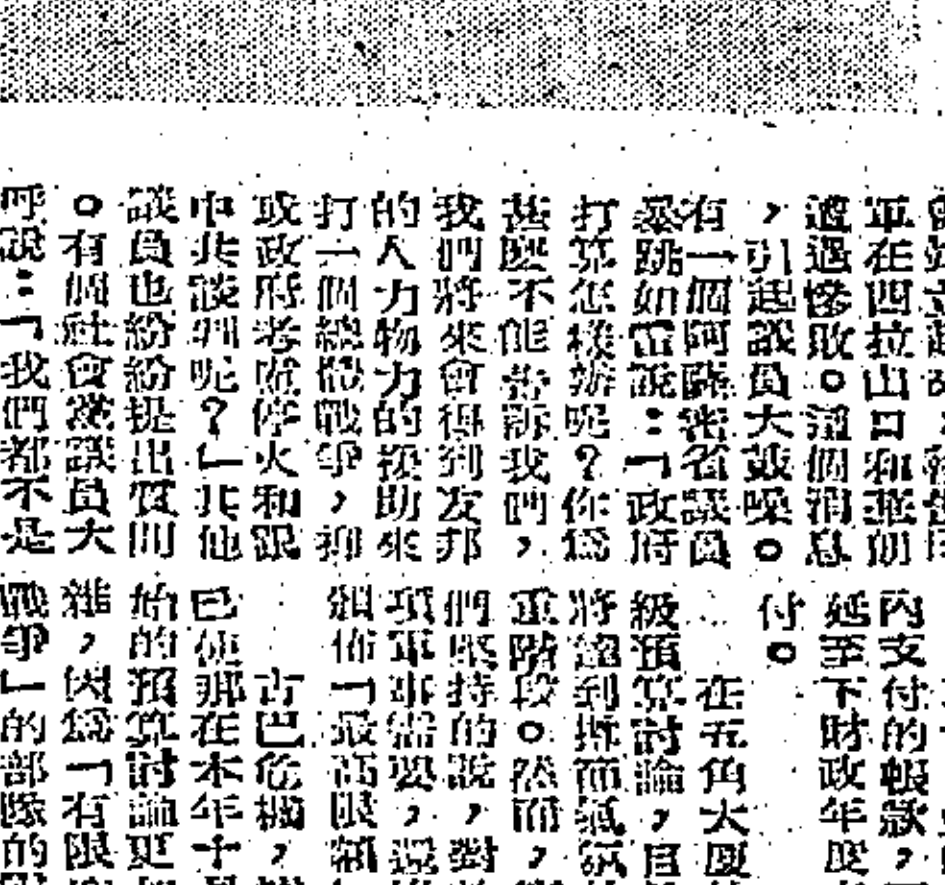 軍在四拉山口和華朗
遭遇慘敗。這個消息
，引起議員大鼓噪。
有一個阿薩密省議員
暴跳如雷說：「政府
打算怎樣辦呢？你爲
甚麼不能告訴我們，
我們將來會得到友邦
的人力物力的援助來
打一個總體戰爭，抑
或政府考慮停火和跟
中共談判呢？」其他
議員也紛紛提出質問
。有個社會黨議員大
呼說：「我們都不是
內支付的帳款，
延至下財政年度
付。
在五角大廈
級預算討論，目
將達到拆而
重階段。然而，
們堅持的說，對
項軍事需要，還
頒佈「最高限額
古巴危機，
已使那在本年十
始的預算討論更
雜，因爲「有限
戰爭」的部隊的